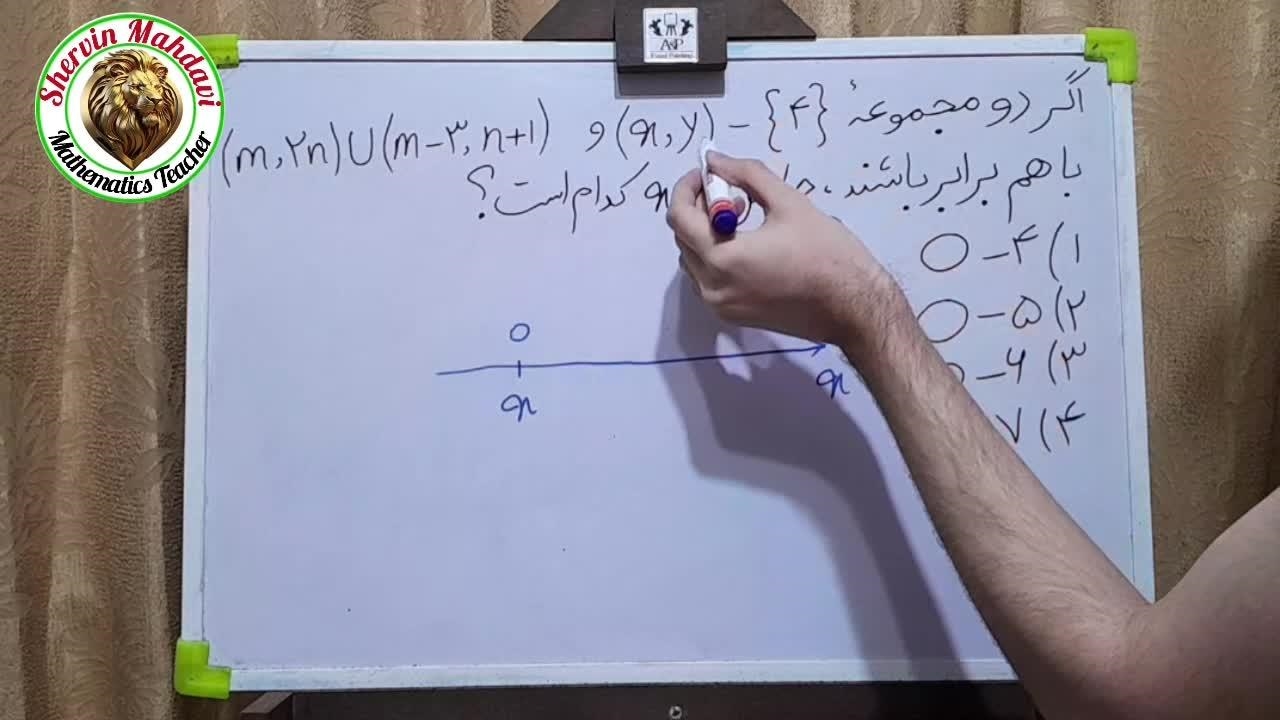 Shervin Mahdavi
Mathematics Teacher
A&P
اگر دو مجموعهٔ (x, y) - {۴} و (m, ۲n) ∪ (m-۳, n+۱)
با هم برابر باشند، x کدام است؟
۱) ۴
۲) ۵
۳) ۶
۴) ۷
o
x x